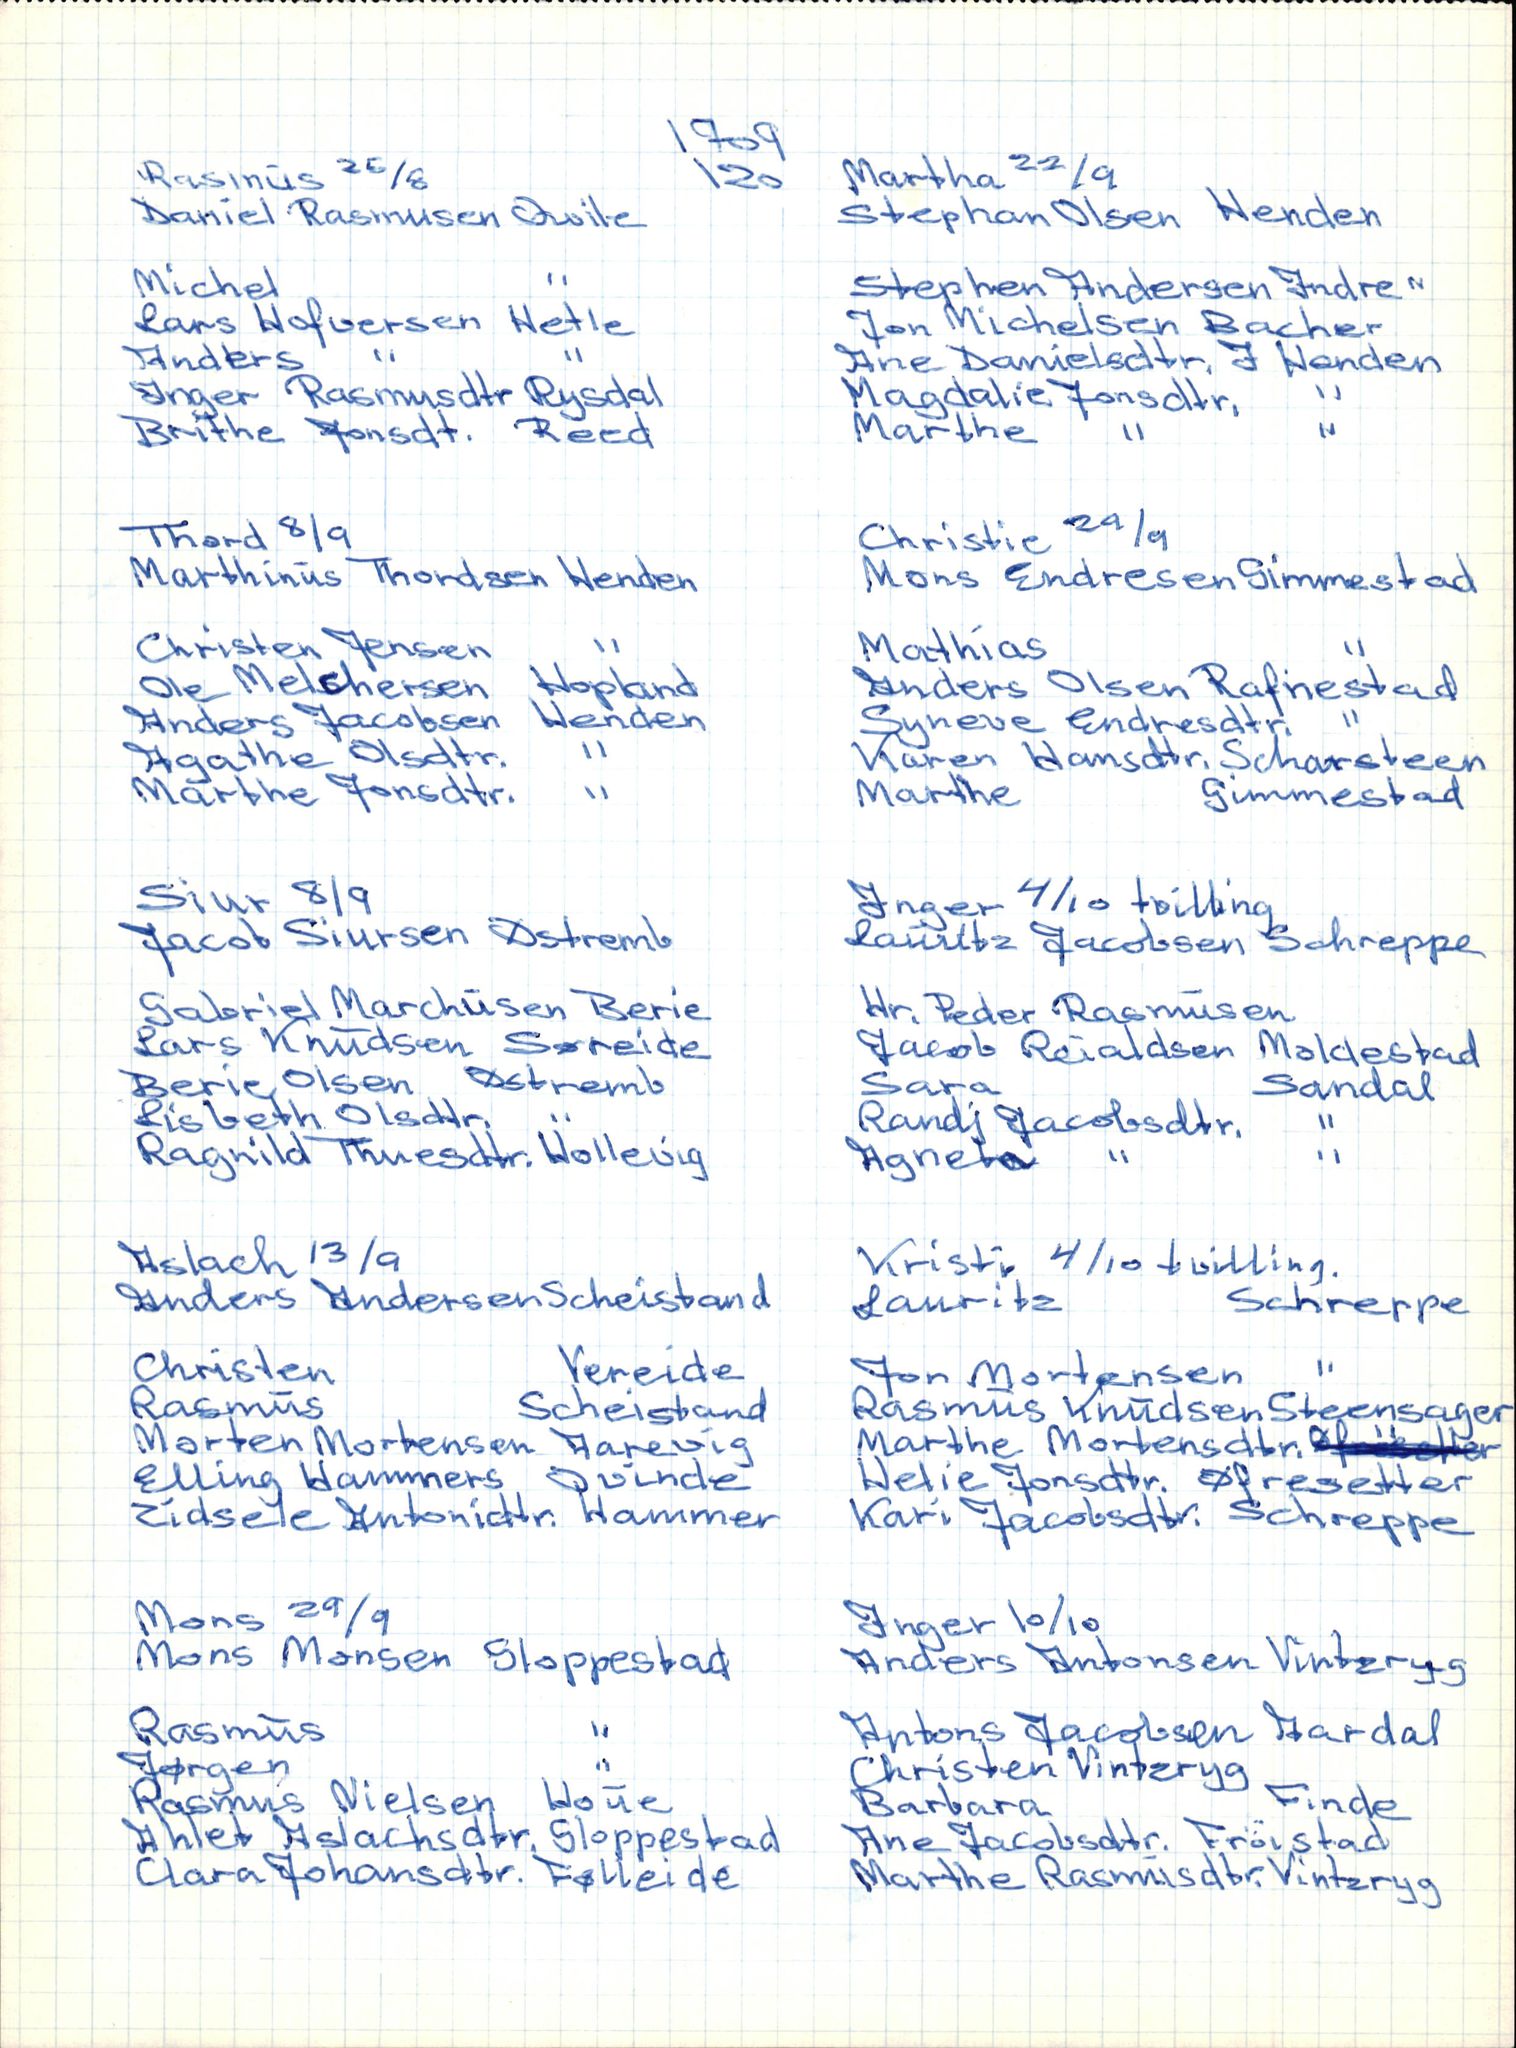 1709
120
Rasmūs 25/8
Daniel Rasmusen Qvile
Michel "
Lars Hofversen Hetle
Anders " "
Inger Rasmusdtr Rysdal
Brithe Jonsdt. Reed
Thord 8/9
Marthinūs Thordsen Henden
Christen Jensen "
Ole Melchersen Hopland
Anders Jacobsen Henden
Agathe Olsdtr. "
Marthe Jonsdtr. "
Siur 8/9
Jacob Siursen Østremb
Gabriel Marchūsen Berie
Lars Knūdsen Søreide
Berie Olsen Østremb
Lisbeth Olsdtr. "
Ragnild Thuesdtr. Hollevig
Aslach 13/9
Anders Andersen Scheistand
Christen Vereide
Rasmūs Scheistand
Morten Mortensen Aarevig
Elling Hammers Qvinde
Zidsele Antonidtr. Hammer
Mons 29/9
Mons Monsen Gloppestad
Rasmūs "
Jørgen "
Rasmus Nielsen Hoūe
Ahlet Aslachsdtr. Gloppestad
Clara Johansdtr. Følleide
Martha 22/9
Stephan Olsen Henden
Stephen Andersen Indre "
Jon Michelsen Bacher
Ane Danielsdtr. I Henden
Magdalie Jonsdtr. "
Marthe " "
Christie 29/9
Mons Endresen Gimmestad
Mathias "
Anders Olsen Rafnestad
Syneve Endresdtr. "
Karen Hansdtr. Scharsteen
Marthe Gimmestad
Inger 4/10 tvilling
Lauritz Jacobsen Schreppe
Hr. Peder Rasmūsen
Jacob Reialdsen Moldestad
Sara Sandal
Randj Jacobsdtr. "
Agneta " "
Kristi 4/10 tvilling.
Lauritz Schreppe
Jon Mortensen "
Rasmūs Knūdsen Steensager
Marthe Mortensdtr. "
Helie Jonsdtr. Øfresetter
Kari Jacobsdtr. Schreppe
Inger 10/10
Anders Antonsen Vintzryg
Antons Jacobsen Aardal
Christen Vintzryg
Barbara Finde
Ane Jacobsdtr. Fröistad
Marthe Rasmūsdtr. Vintzryg